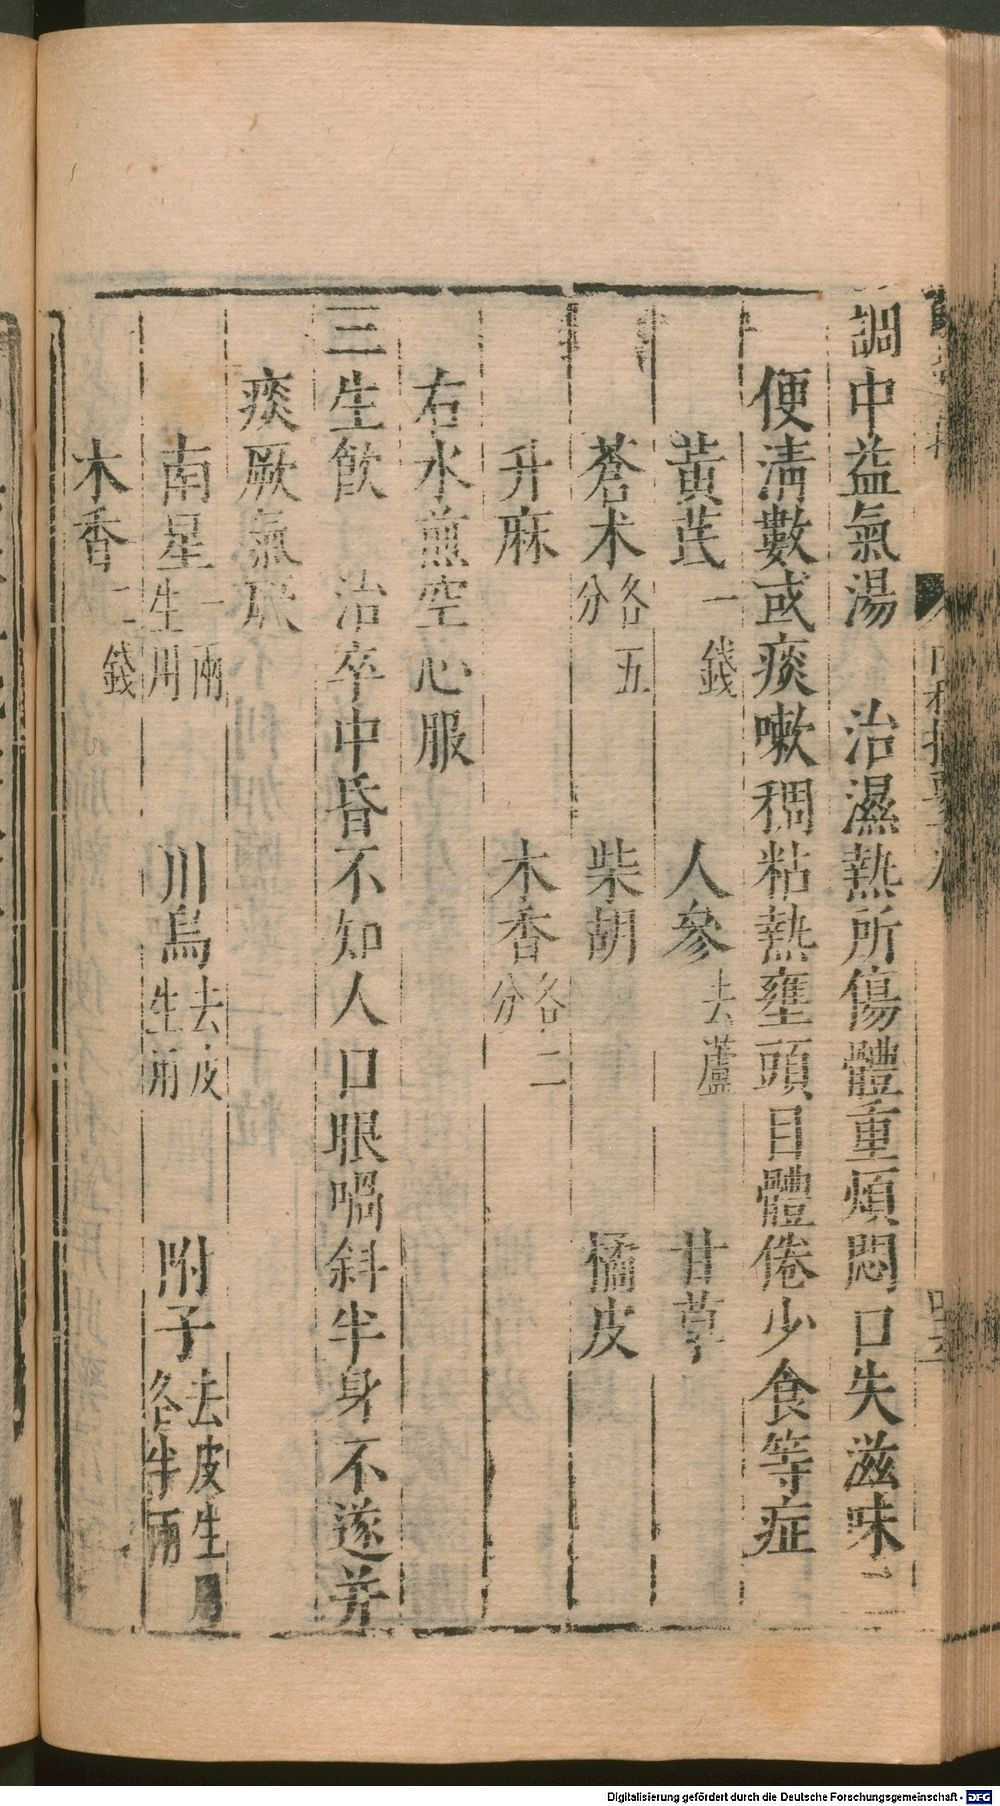 調中益氣湯　治濕熱所傷體重煩悶口失滋味二
便淸數或痰嗽稠粘熱壅頭目體倦少食等症
黃芪一錢　人參去蘆　甘草
蒼朮各五分　柴胡　橘皮
升麻　木香各二分
右水煎空心服
三生飲　治卒中昏不知人口眼喎斜半身不遂并
痰厥氣厥
南星一兩生用　川烏去皮生用　附子去皮生用各半兩
木香二錢
Digitalisierung gefördert durch die Deutsche Forschungsgemeinschaft - DFG